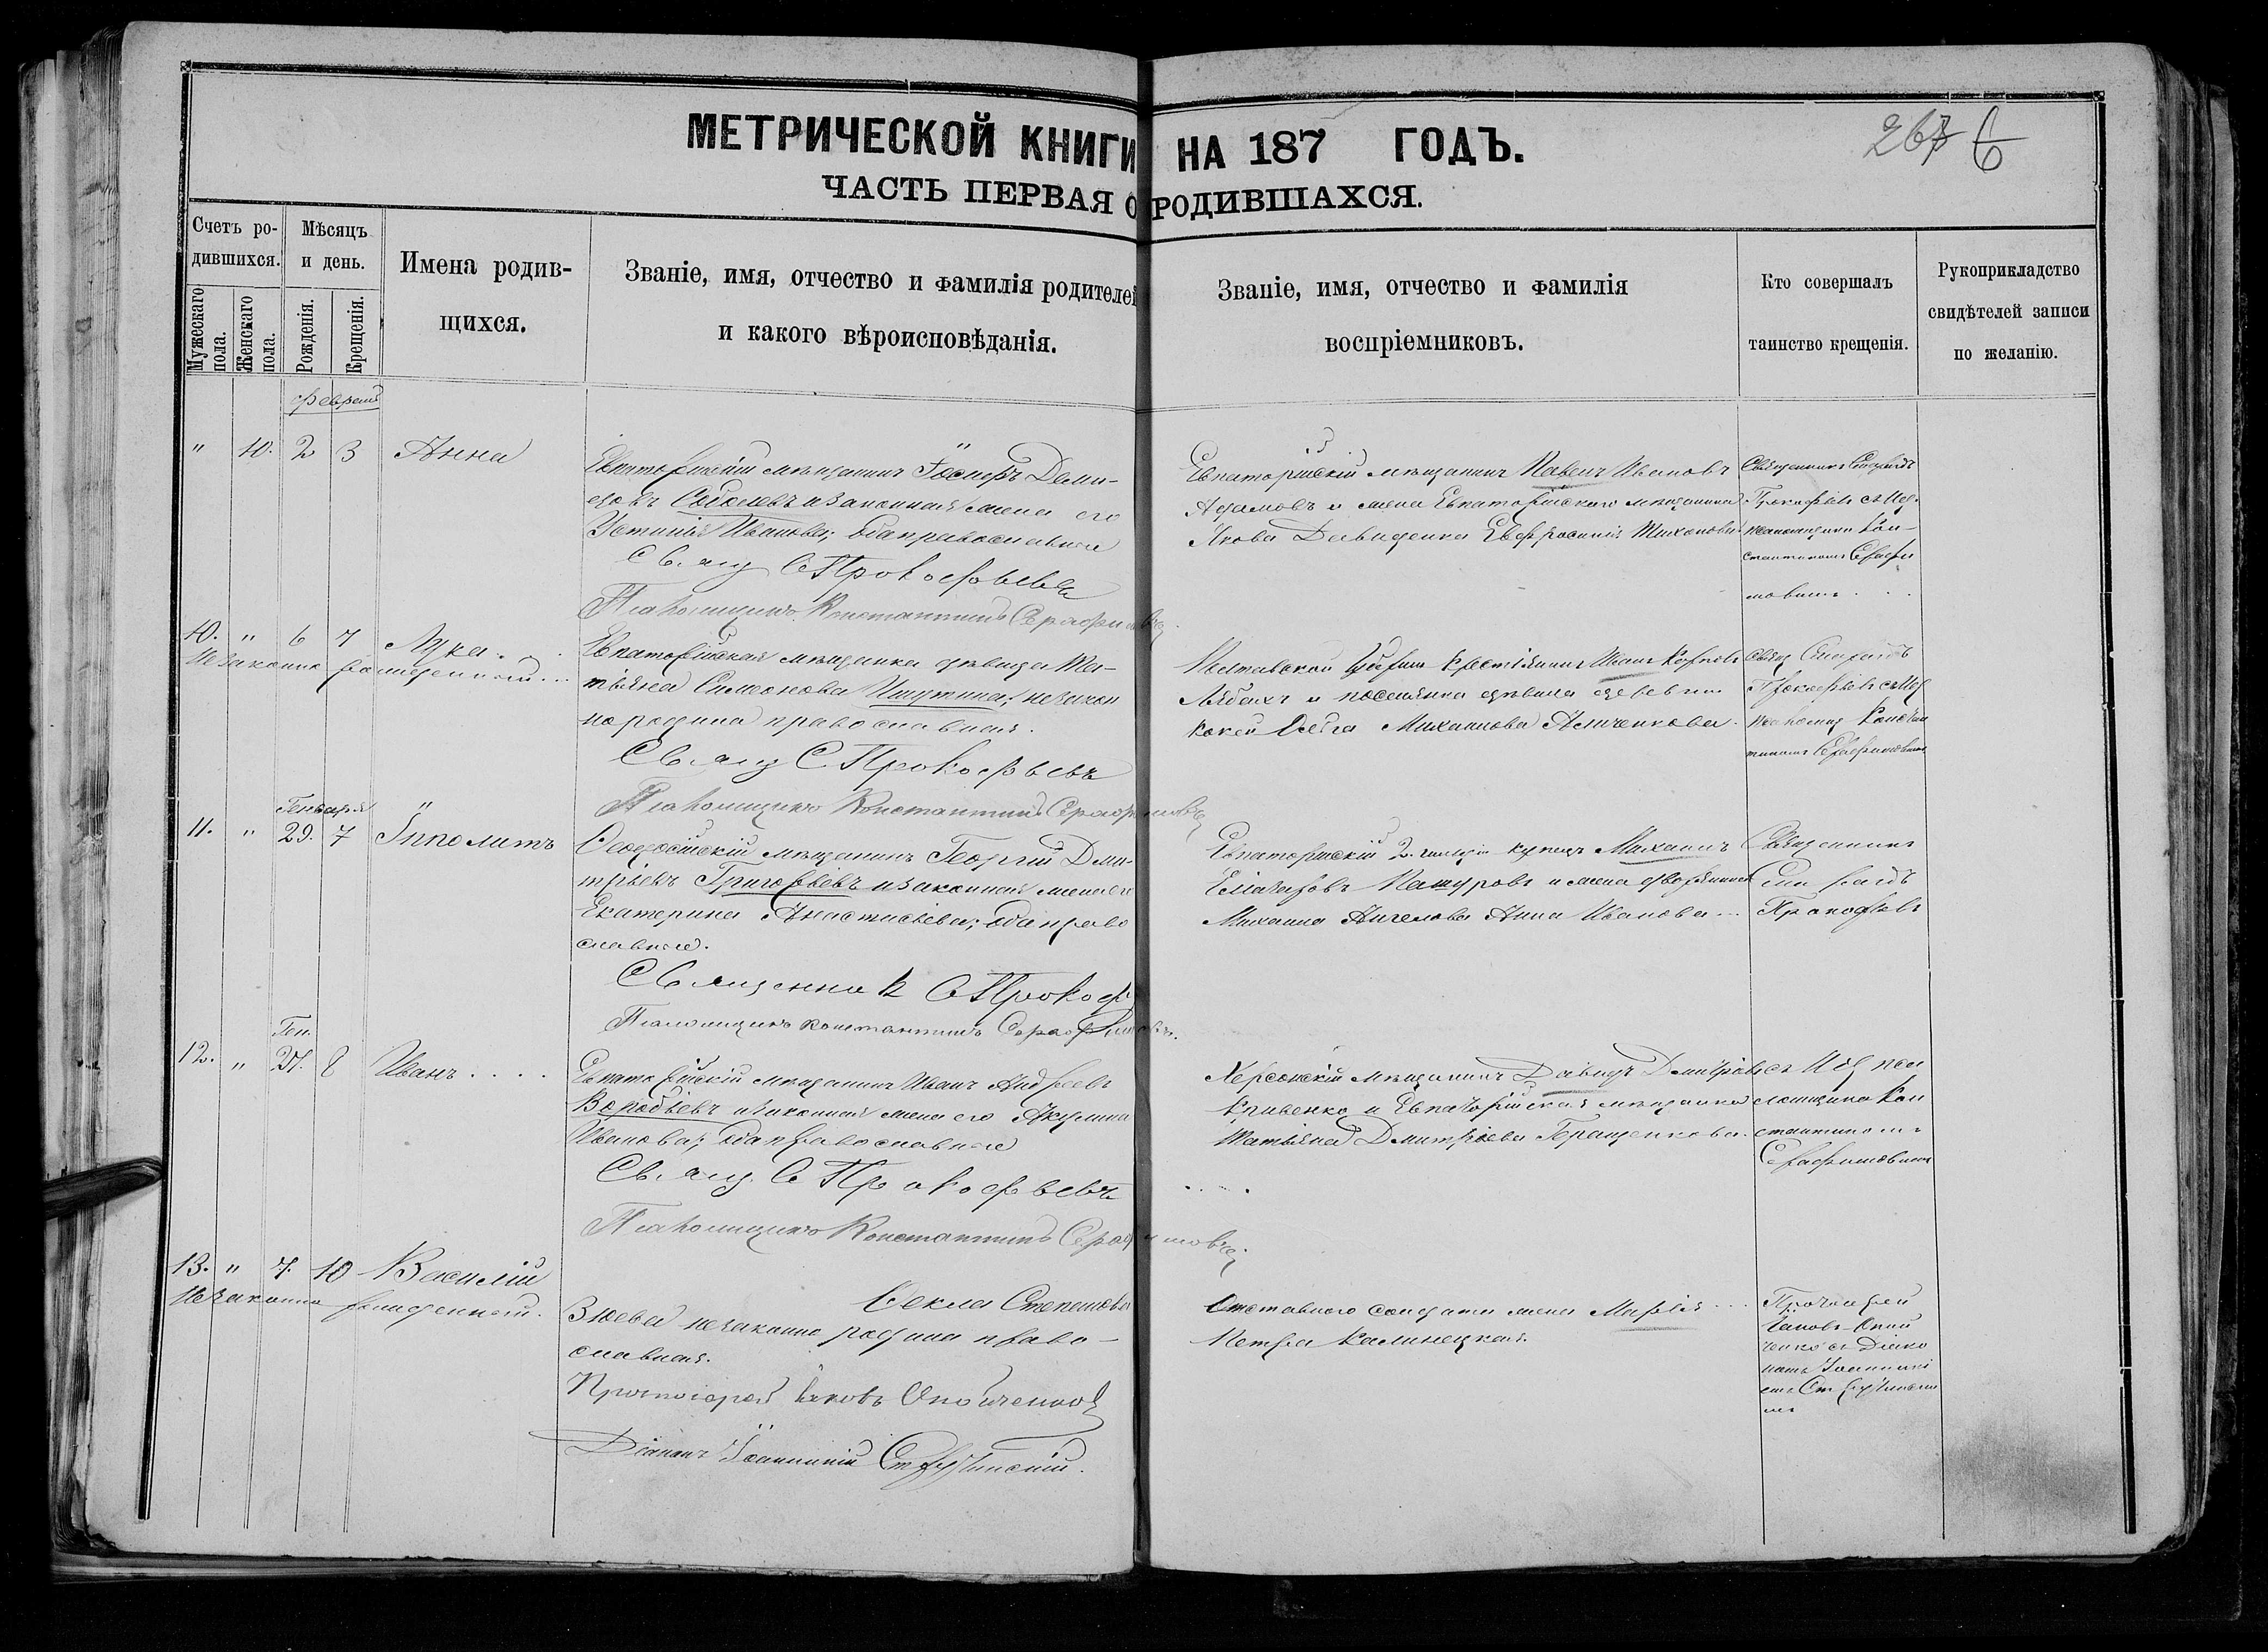 МЕТРИЧЕСКОЙ КНИГИ НА 187 ГОДЪ.
267 6
ЧАСТЬ ПЕРВАЯ О РОДИВШАХСЯ.
Счетъ ро-
дившихся.
Мужескаго
пола.
Женскаго
пола.
Мѣсяцъ
и день.
Рожденія.
Крещенія.
Имена родив-
щихся.
Званіе, имя, отчество и фамилія родителей
и какого вѣроисповѣданія.
Званіе, имя, отчество и фамилія
воспріемниковъ.
Кто совершалъ
таинство крещенія.
Рукоприкладство
свидѣтелей записи
по желанію.
февраль
" 10. 2 3 Анна
Евпаторійскій мѣщанинъ Іосифъ Деми-
довъ Соболевъ и законная жена его
Устинія Иванова; оба православные
Свящ. С Прокофьевъ
Псаломщикъ Константинъ Серафимовъ
Евпаторійскій мѣщанинъ Павелъ Ивановъ
Адамовъ и жена Евпаторійскаго мѣщанина
Якова Давиденка Евфросинія Тихонова
Священникъ Спиридонъ
Прокофьевъ съ
псаломщикомъ Кон-
стантиномъ Серафи
мовымъ . . .
10. " 6 7 Лука . .
Незаконно рожденный ...
Евпаторійская мѣщанка дѣвица Та-
тьяна Симонова Ишутина; незакон
но родила православная.
Свящ С. Прокофьевъ
Псаломщикъ Константинъ Серафимовъ
Полтавской Губерніи крестьянинъ Иванъ Карповъ
и поселянка дѣвица деревни
Михаилова
Свящ Спиридонъ
Прокофьевъ съ
псаломщ Констан
тиномъ Серафимовымъ
Генваря
11. " 29. 7 Ипполитъ
Феодосійскій мѣщанинъ Георгій Дми-
тріевъ Григорьевъ и законная жена его
Екатерина Анастасіева; оба право
славные.
Священникъ С Прокоф
Псаломщикъ Константинъ Серафимовъ.
Евпаторійскій 2. гильдіи купецъ Михаилъ
Елеазаровъ Пашуровъ и жена дворянина
Михаила Ангелова Анна Иванова ...
Священникъ
Спиридонъ
Прокофьевъ
Ген.
12. " 27. 8 Иванъ . . . .
Евпаторійскій мѣщанинъ Иванъ Андреевъ
Воробьевъ и законная жена его Акулина
Иванова; оба православные
Свящ. С Прокофьевъ
Псаломщикъ Константинъ Серафимовъ
Херсонскій мѣщанинъ Давидъ Дмитріевъ
Кривенко и Евпаторійская мѣщанка
Татьяна Дмитріева Геращенкова.
. . . .
съ Ис пса
ломщикомъ Кон
стантиномъ
Серафимовымъ
13. " 7. 10 Василій
Незаконно рожденный.
Фекла Степанова
Зюева незаконно родила право-
славная.
Протоіерей Іаковъ Опойченко
Діаконъ Іоанникій
Отставного солдата жена Марія ...
Петра Калинецкая.
Протоіерей
Іаковъ Опой
ченко съ Діако
номъ Іоанникі
емъ